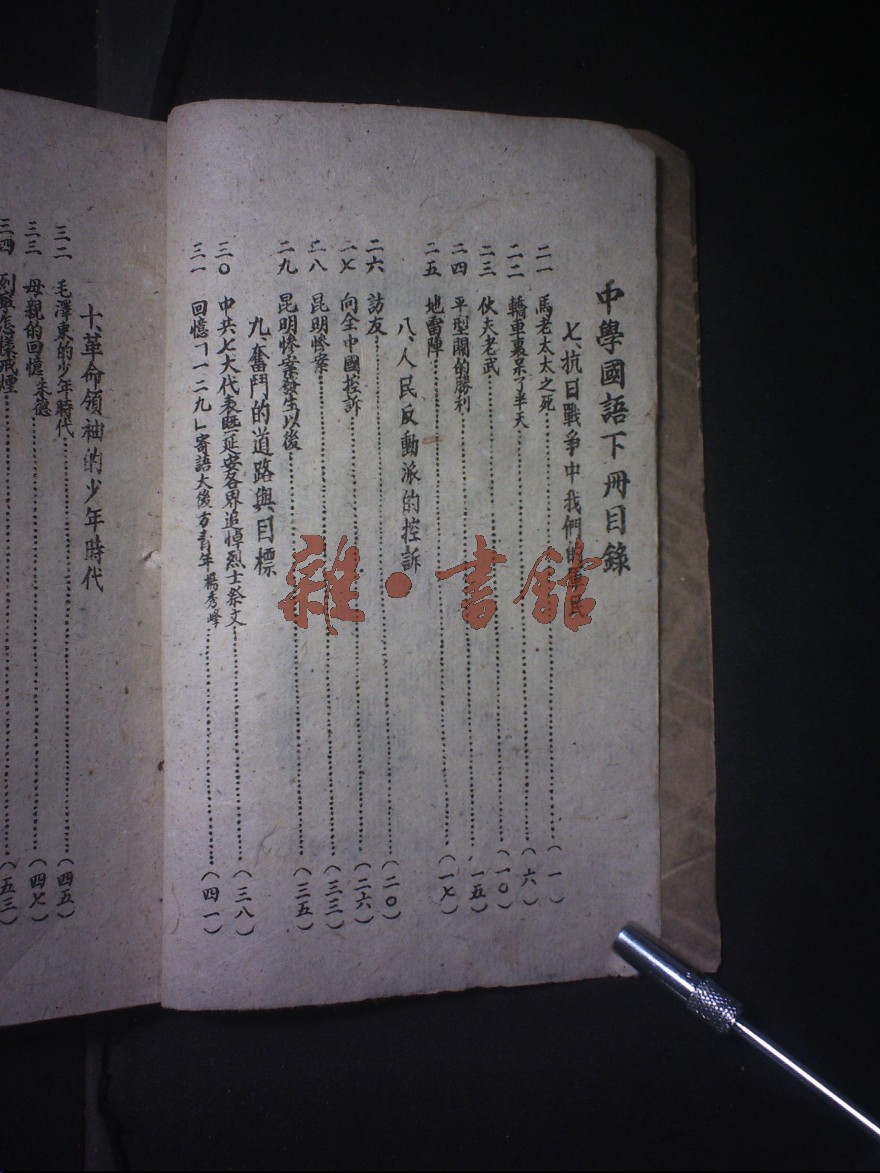 中學國語下冊目錄
七、抗日戰爭中我們的軍民
二一 馬老太太之死(一)
二二 轎車裏呆了半天(六)
二三 伙夫老武(一〇)
二四 平型關的勝利(一五)
二五 地雷陣(一七)
八、人民反動派的控訴
二六 訪友(二〇)
二七 向全中國控訴(二六)
二八 昆明慘案(三三)
二九 昆明慘案發生以後(三五)
九、奮鬥的道路與目標
三〇 中共七大代表暨延安各界追悼烈士祭文(三八)
三一 回憶「一二九」寄語大後方青年 楊秀峰(四一)
十、革命領袖的少年時代
三二 毛澤東的少年時代(四五)
三三 母親的回憶 朱德(四七)
三四 列寧怎樣戒煙(五三)
雜·書館